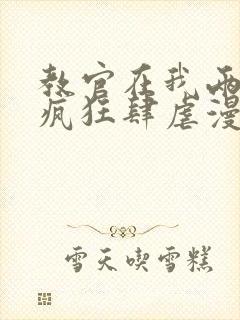 教官在我两
疯狂肆虐漫
雪天喫雪糕